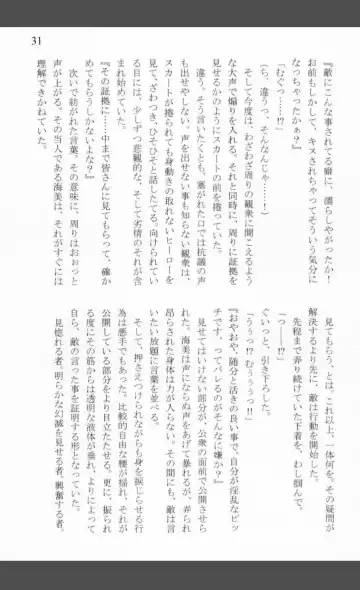 31
『敵にこんな事されてる癖に、濡らしやがったか！
お前もしかして、キスされちゃってそういう気分に
なっちゃったかぁ？』
「むぐっ……！」
（ち、違うっ、そんなんじゃ……！）
そして今度は、わざわざ周りの観衆に聞こえるよう
な大声で煽りを入れる。それと同時に、周りに証拠を
見せるかのようにスカートの前を捲っていた。
違う。そう言いたくとも、塞がれた口では抗議の声
も出せやしない。声を出せない事も知らない観衆は、
スカートが捲られても身動きの取れないヒーローを
見て、ざわつき、ひそひそと話したてる。向けられてい
る目には、少しずつ悲観的な、そして劣情のそれが含
まれ始めていた。
『その証拠に……中まで皆さんに見てもらって、確か
めてもらうしかないよな？』
次いで紡がれた言葉。その意味に、周りはおおっと
声が上がる。その当人である海美は、それがすぐには
理解できかねていた。
見てもらう、とは。これ以上、一体何を。その疑問が
解決するより先に、敵は行動を開始した。
先程まで弄り続けていた下着を、わし掴んで、
ぐいっと、引き下ろした。
「っ――!?」
「うぅっ!?　むぅぅぅっ!?」
『おやおや、随分と活きの良い事で、自分が淫乱なビッ
チです、ってバレるのがそんなに嫌か？』
見せてはいけない部分が、公衆の面前で公開させら
れた。海美は声にならぬ声をあげて暴れるが、弄られ
昂らされた身体は力が入らない。その間にも、敵は言
いたい放題に言葉を並べる。
そして、押さえつけられながらも身を捩じらせる行
為は悪手でもあった。比較的自由な腰が揺れ、それが
公開している部分をより目立たせる。更に、振られ
る度にその筋からは透明な液体が垂れ、よりによって
自ら、敵の言った事を証明する形となっていた。
見惚れる者。明らかな幻滅を見せる者。興奮する者。